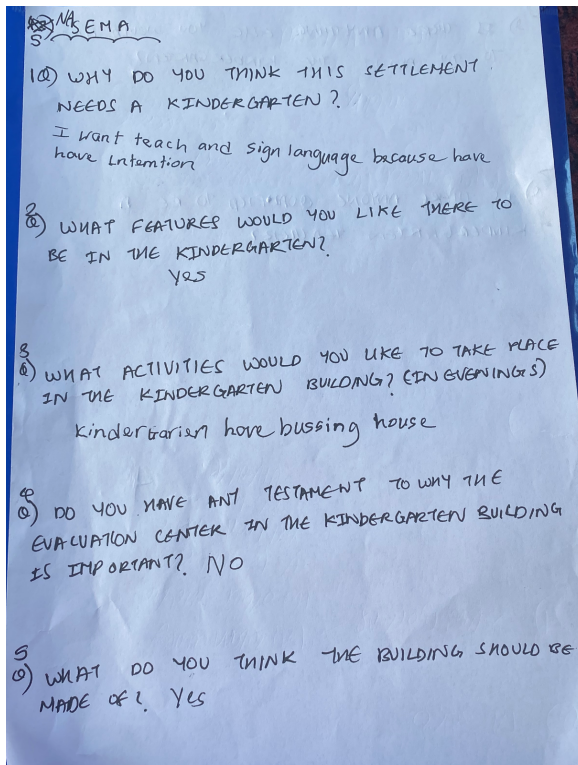 NASEMA
1Q) WHY DO YOU THINK THIS SETTLEMENT
NEEDS A KINDERGARTEN?
I want teach and sign language because have
have Intention
2Q) WHAT FEATURES WOULD YOU LIKE THERE TO
BE IN THE KINDERGARTEN?
Yes
3Q) WHAT ACTIVITIES WOULD YOU LIKE TO TAKE PLACE
IN THE KINDERGARTEN BUILDING? (IN EVENINGS)
Kindergarien hove bussing house
4Q) DO YOU HAVE ANY TESTAMENT TO WHY THE
EVALUATION CENTER IN THE KINDERGARTEN BUILDING
IS IMPORTANT? NO
5Q) WHAT DO YOU THINK THE BUILDING SHOULD BE
MADE OF? Yes